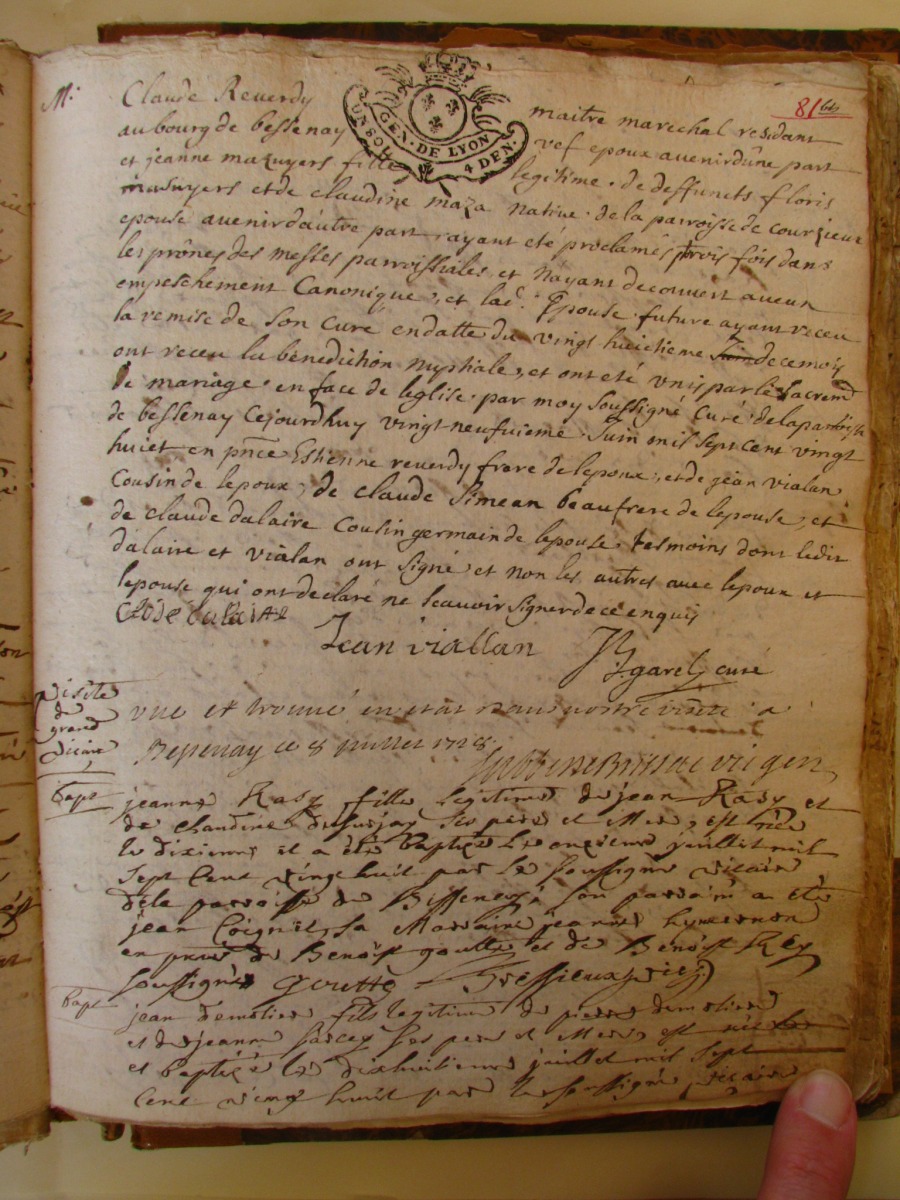 M.
81 bis
GEN. DE LYON
UN SOL 4 DEN.
Claude Reverdy maitre marechal residant
au bourg de bessenay vef epoux avenir d'une part
et jeanne mazuyers fille legitime de deffuncts floris
masuyers et de claudine maza native de la parroisse de courzieux
epouse avenir d'autre part ayant eté proclamés trois fois dans
les prônes des messes parroissiales, et n'ayant decouvert aucun
empeschement Canonique, et lad. Epouse future ayant receu
la remise de son curé en datte du vingt huictieme Juin de ce mois
ont receu la bénédiction nuptiale, et ont eté unis par le Sacrem
de mariage en face de l'eglise par moy soussigné curé de la parroisse
de bessenay cejourdhuy vingt neufuieme Juin mil sept cent vingt
huict en pnce Estienne reverdy frere de lepoux, et de jean vialan
Cousin de lepoux, de claude Simean beaufrere de lepouse, et
de claude dalaire Cousin germain de lepouse tesmoins dont ledit
dalaire et vialan ont signé et non les autres avec lepoux et
lepouse qui ont declaré ne scauoir signer de ce enquis
Jean viallan J garel curé
visite
de
grand
vicaire
vue et trouvé en etat dans nostre visite a
Bessenay ce 8 juillet 1728
bapt
jeanne Razy fille legitime de jean Razy et
de claudine ses pere et Mere, est née
le dixieme et a eté baptisée le onzieme juillet mil
sept cent vingt huit par le soussigné vicaire
de la paroisse de Bessenay son parrain a eté
jean Coignet, sa Marraine jeanne
en pnce de Benoist goutte et de Benoist Rey
soussignés Goutte Dressieux vic
bapt
jean demoliere fils legitime de pierre demoliere
et de jeanne sarcey ses pere et Mere, est né
et baptizé le dixhuitieme juillet mil sept
cent vingt huit par le soussigné vicaire